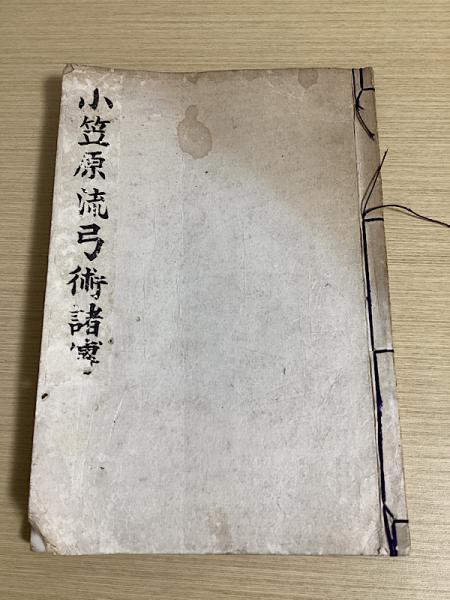 小笠原流弓術諸傳